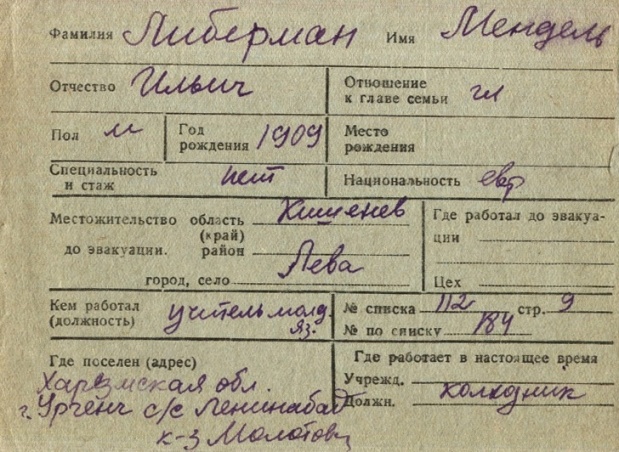 Фамилия Либерман Имя Мендель
Отчество Ильич Отношение к главе семьи гл
Пол м Год рождения 1909 Место рождения
Специальность и стаж нет Национальность евр
Местожительство область (край) Кишенев
до эвакуации. район
город, село Лева
Где работал до эвакуа-
ции
Цех
Кем работал (должность) учитель молд. яз.
№ списка 112г стр. 9
№ по списку 184
Где поселен (адрес)
Харезмская обл.
г. Ургенч с/с Ленинабад
к-з Молотова
Где работает в настоящее время
Учрежд.
Должн. колхозник